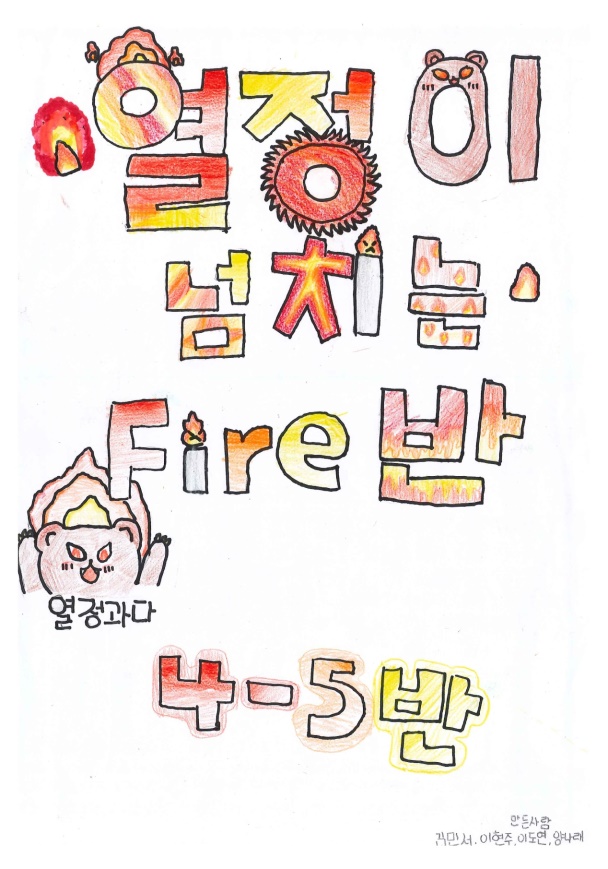 열정이
넘치는
Fire 반
열정과다
4-5반
만든사람
이현주, 이도연, 양나래